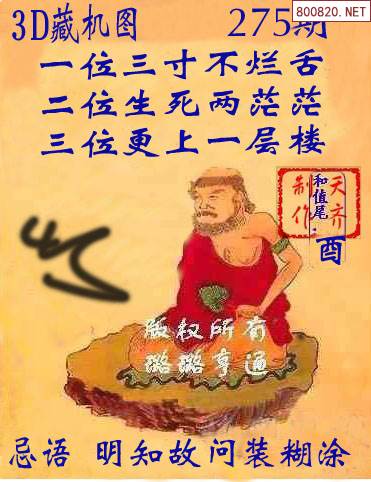 800820.NET
3D藏机图 275期
一位三寸不烂舌
二位生死两茫茫
三位更上一层楼
天齐
制作
和值尾:
酉
版权所有
璐璐亨通
忌语 明知故问装糊涂